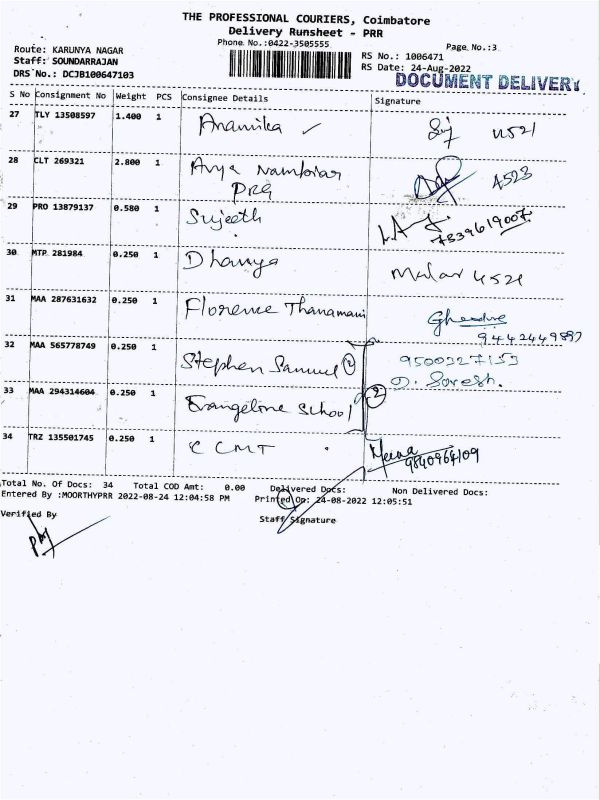 THE PROFESSIONAL COURIERS, Coimbatore
Delivery Runsheet - PRR
Phone No.:0422-3505555
Page No.:3
Route: KARUNYA NAGAR
RS No.: 1006471
Staff: SOUNDARRAJAN
RS Date: 24-Aug-2022
DRS No.: DCJB100647103
DOCUMENT DELIVERY
S No Consignment No Weight PCS Consignee Details Signature
27 TLY 13508597 1.400 1 Anamika ✓ 4521
28 CLT 269321 2.800 1 Arya Nambiar 4523
PRG
29 PRO 13879137 0.580 1 Sujeeth
7339619007
30 MTP 281984 0.250 1 Dhanya Malar 4521
31 MAA 287631632 0.250 1 Florence Thanamani
32 MAA 565778749 0.250 1 Stephen Samuel 2 9500227153
D. Suresh.
33 MAA 294314604 0.250 1 Evangeline School 2
34 TRZ 135501745 0.250 1 CCMT Meena
9840964109
Total No. Of Docs: 34 Total COD Amt: 0.00 Delivered Docs: Non Delivered Docs:
Entered By :MOORTHYPRR 2022-08-24 12:04:58 PM Printed On: 24-08-2022 12:05:51
Verified By
Staff Signature